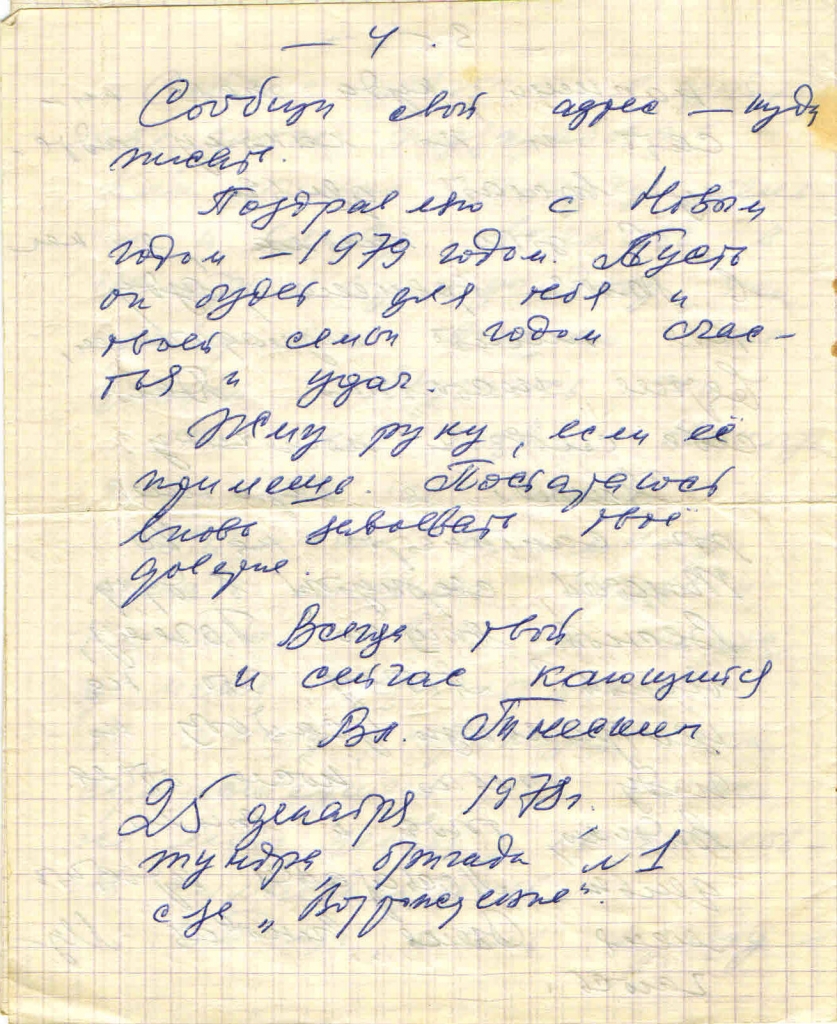 — 4.
Сообщи свой адрес — куда
писать.
Поздравляю с Новым
годом — 1979 годом. Пусть
он будет для тебя и
твоей семьи годом счас-
тья и удач.
Жму руку, если её
примешь. Постараюсь
вновь завоевать твоё
доверие.
Всегда твой
и сейчас кающийся
Вл.
25 декабря 1978 г.
тундра, бригада №1
с-за „Возрождение".